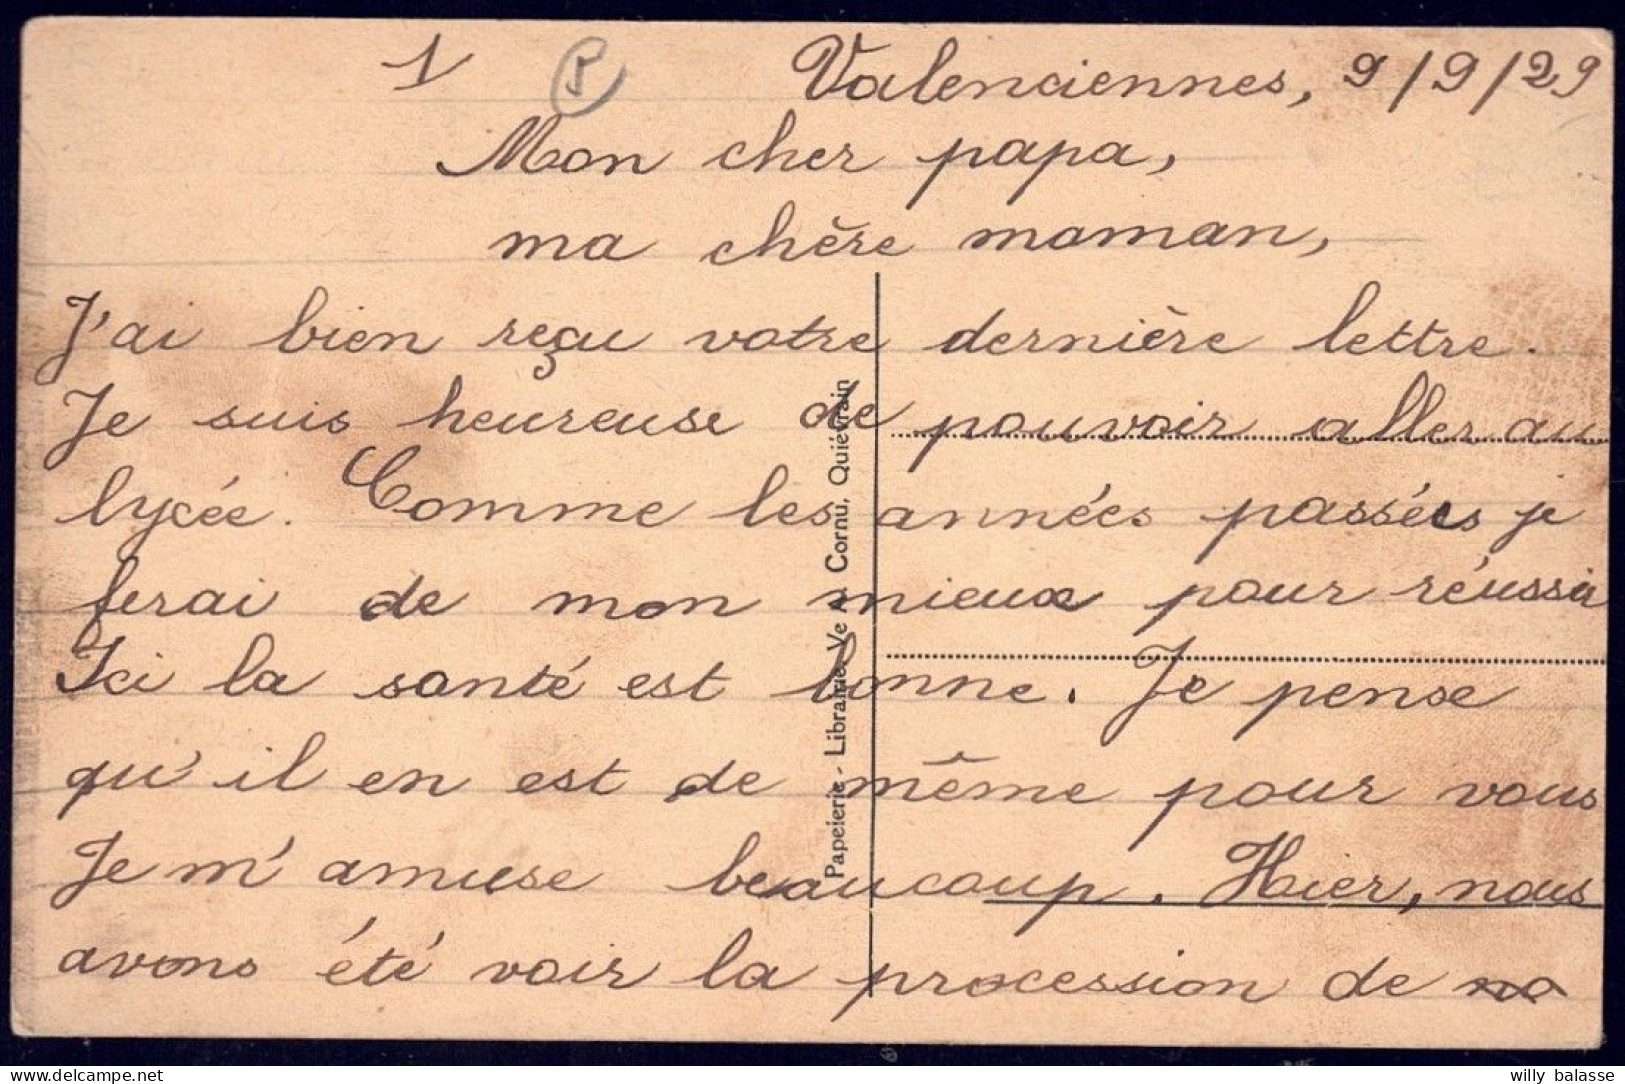 1 5 Valenciennes, 9/9/29
Mon cher papa,
ma chère maman,
J'ai bien reçu votre dernière lettre.
Je suis heureuse de pouvoir aller au
lycée. Comme les années passées je
ferai de mon mieux pour réussir
Ici la santé est bonne. Je pense
qu'il en est de même pour vous
Je m'amuse beaucoup. Hier, nous
avons été voir la procession de
Papeierie - Librairie Ve A Cornu, Quiévrain
willy balasse